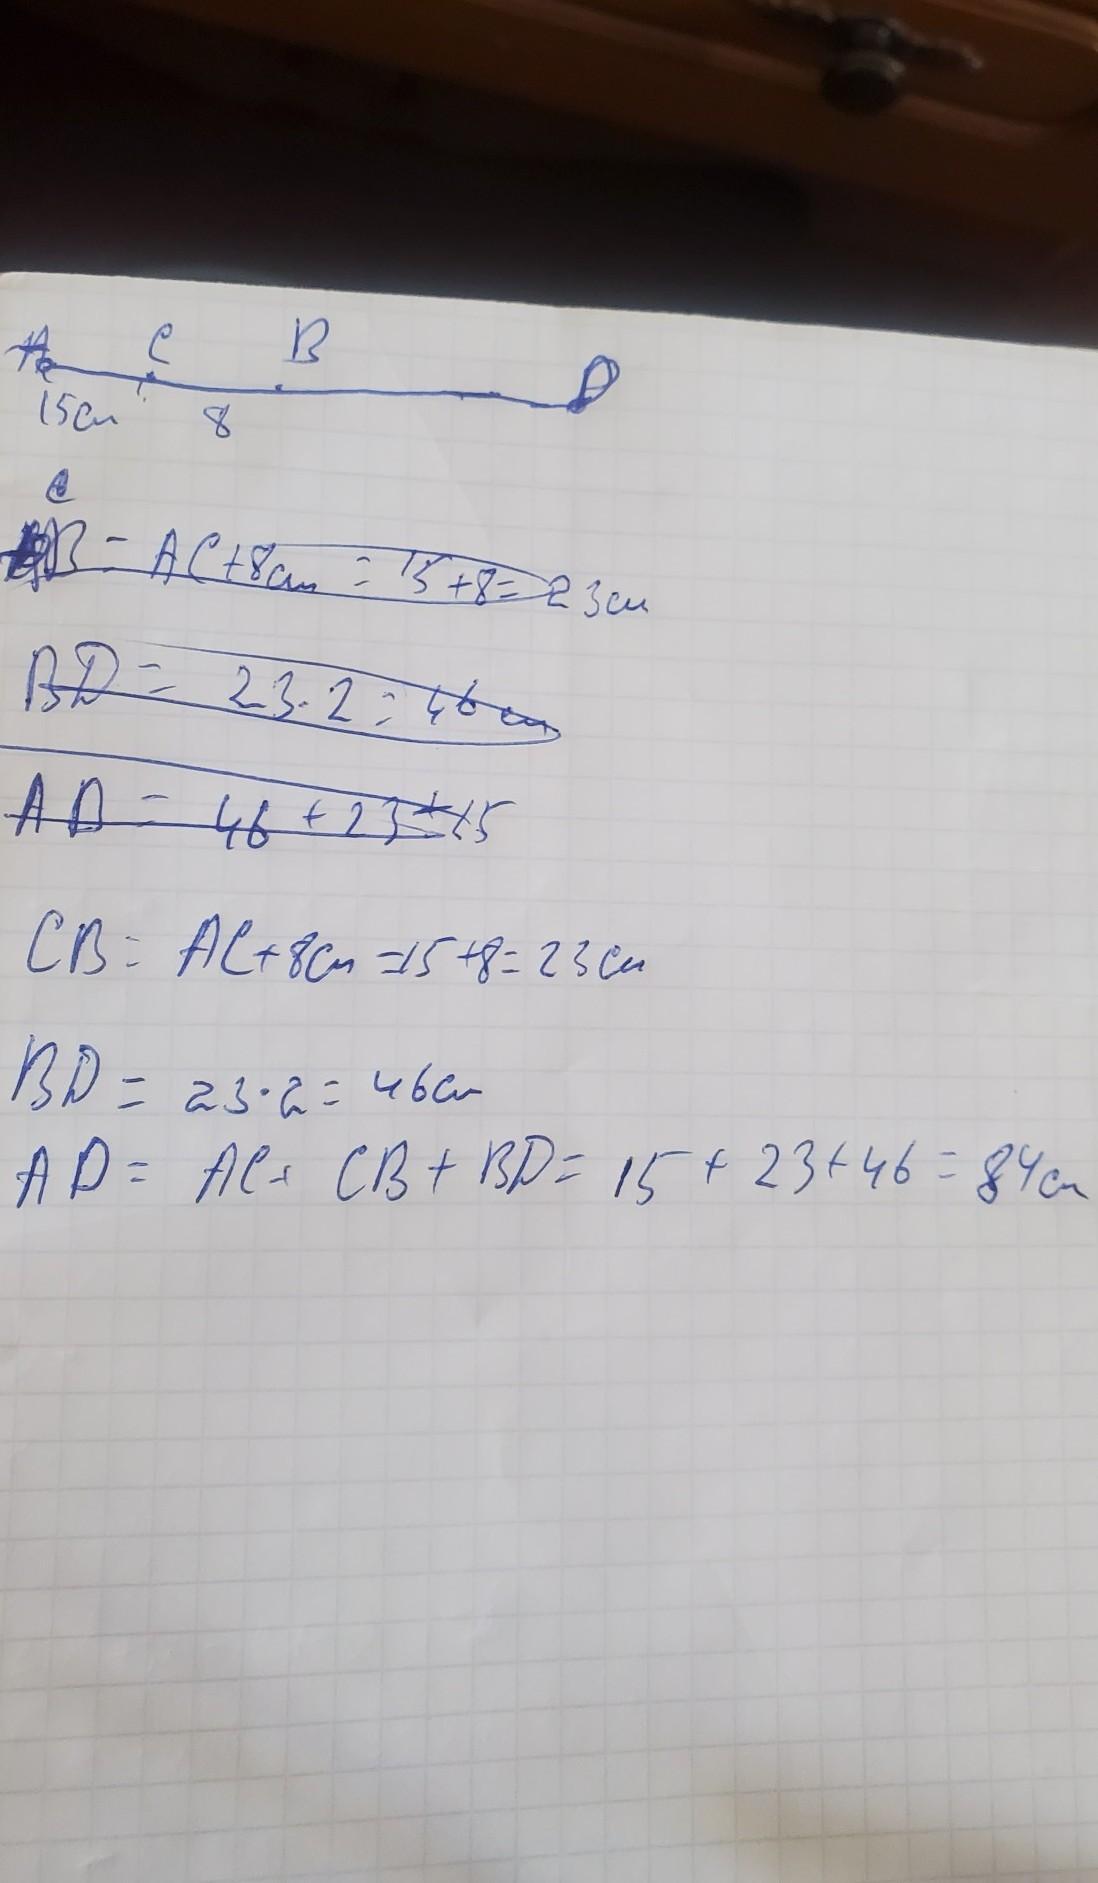 A C B D
15см 8
C
B = AC+8см = 15+8= 23см
BD = 23·2= 46см
AD = 46+23+15
CB= AC+8см=15+8=23см
BD= 23·2= 46см
AD= AC+ CB+BD= 15+23+46=84см